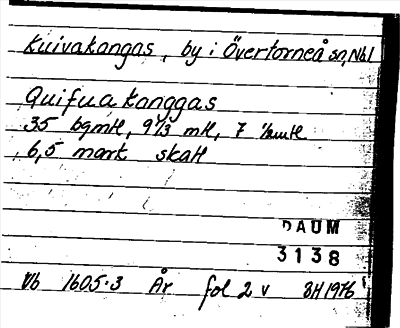 Kuivakangas, by i Övertorneå sn, Nbl
Quifuakanggas
35 bgmtl, 9 1/3 mtl, 7
6,5 mark skatt
DAUM
3138
Vb 1605:3 År fol 2 v BH 1976